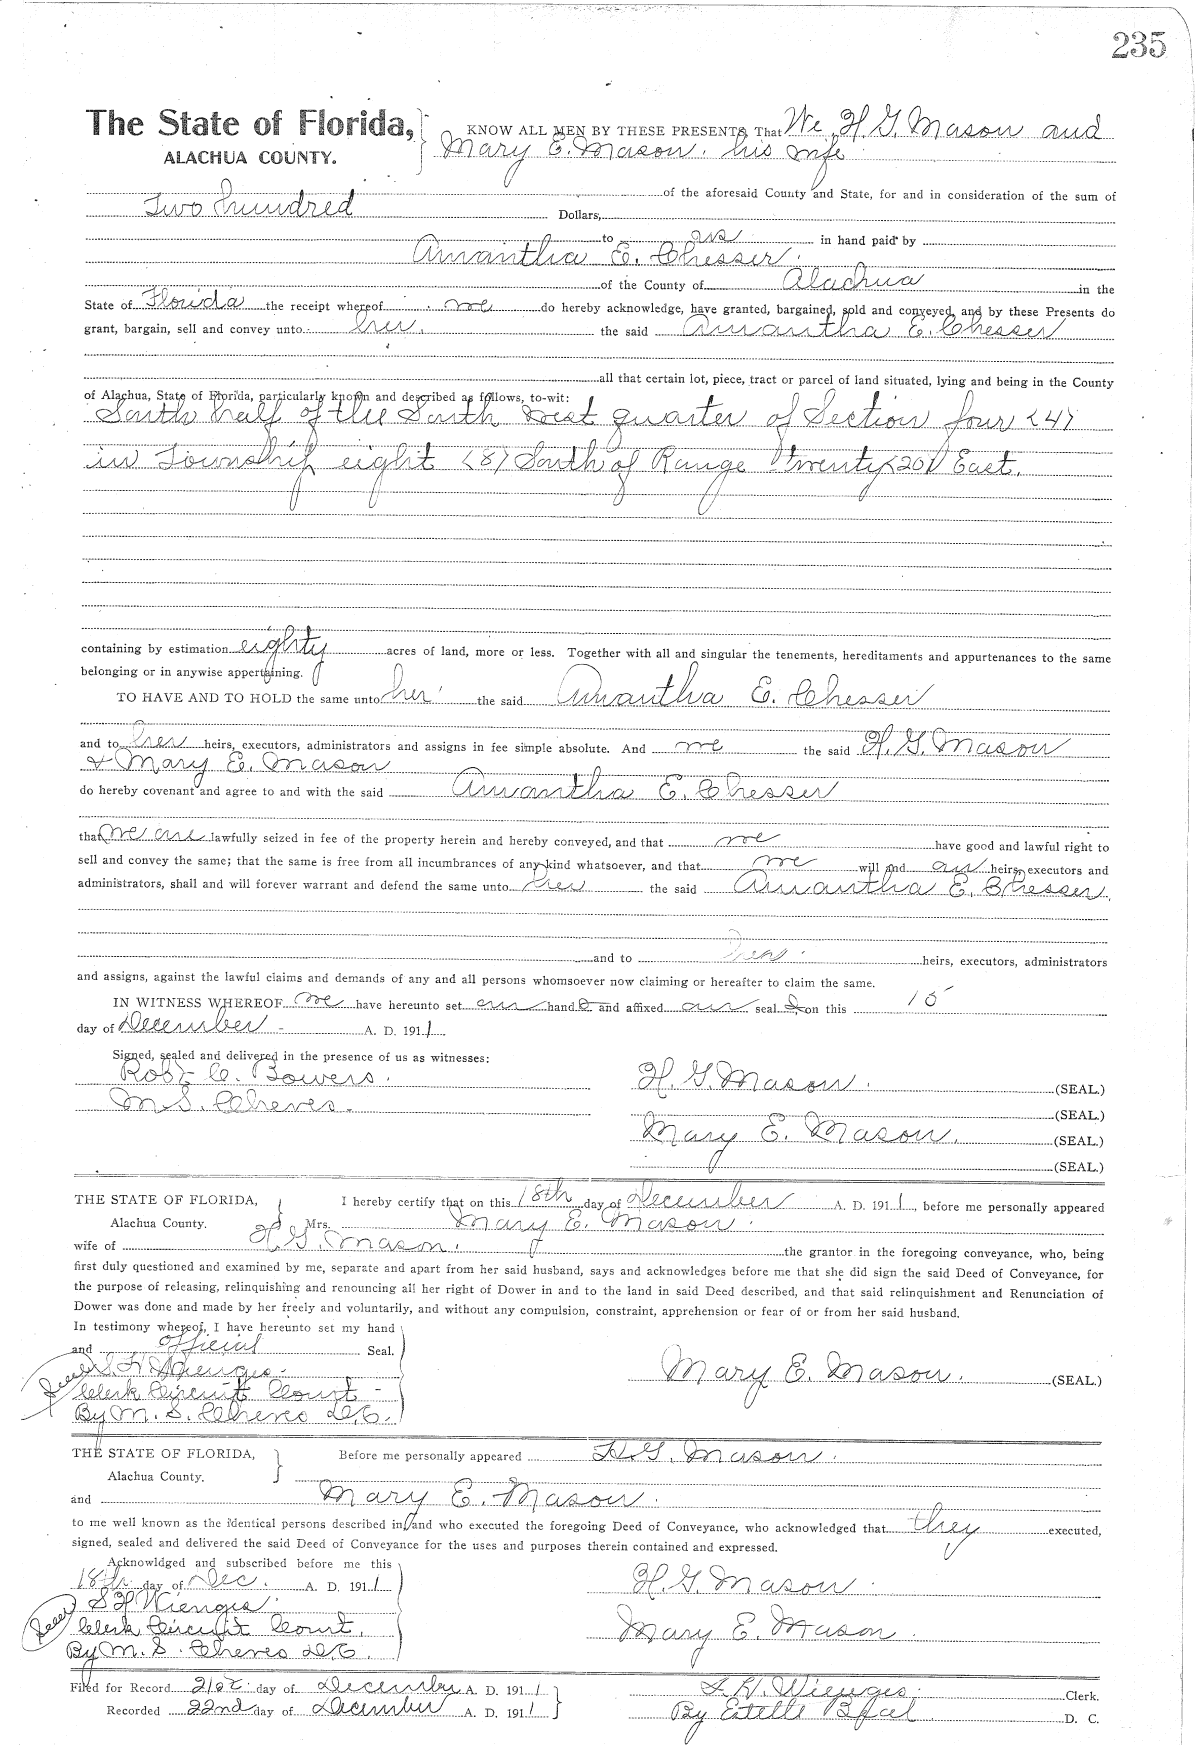 235
The State of Florida,
ALACHUA COUNTY.
KNOW ALL MEN BY THESE PRESENTS, That We, H. G. Mason and
Mary E. Mason, his wife
of the aforesaid County and State, for and in consideration of the sum of
Two hundred Dollars,
to us in hand paid by
Amantha E. Chesser.
of the County of Alachua in the
State of Florida the receipt whereof we do hereby acknowledge, have granted, bargained, sold and conveyed, and by these Presents do
grant, bargain, sell and convey unto her. the said Amantha E. Chesser
all that certain lot, piece, tract or parcel of land situated, lying and being in the County
of Alachua, State of Florida, particularly known and described as follows, to-wit:
South half of the South West quarter of Section four (4)
in Township eight (8) South of Range twenty (20) East.
containing by estimation eighty acres of land, more or less. Together with all and singular the tenements, hereditaments and appurtenances to the same
belonging or in anywise appertaining.
TO HAVE AND TO HOLD the same unto her the said Amantha E. Chesser
and to her heirs, executors, administrators and assigns in fee simple absolute. And we the said H. G. Mason
& Mary E. Mason
do hereby covenant and agree to and with the said Amantha E. Chesser
that we are lawfully seized in fee of the property herein and hereby conveyed, and that we have good and lawful right to
sell and convey the same; that the same is free from all incumbrances of any kind whatsoever, and that we will and our heirs, executors and
administrators, shall and will forever warrant and defend the same unto her the said Amantha E. Chesser
and to her heirs, executors, administrators
and assigns, against the lawful claims and demands of any and all persons whomsoever now claiming or hereafter to claim the same.
IN WITNESS WHEREOF we have hereunto set our hand s and affixed our seal s on this 15
day of December A. D. 1911.
Signed, sealed and delivered in the presence of us as witnesses:
Robt C. Bowers.
M. S. Cheves.
H. G. Mason. (SEAL.)
(SEAL.)
Mary E. Mason. (SEAL.)
(SEAL.)
THE STATE OF FLORIDA,
Alachua County.
I hereby certify that on this 18th day of December A. D. 1911, before me personally appeared
Mrs. Mary E. Mason.
wife of H. G. Mason. the grantor in the foregoing conveyance, who, being
first duly questioned and examined by me, separate and apart from her said husband, says and acknowledges before me that she did sign the said Deed of Conveyance, for
the purpose of releasing, relinquishing and renouncing all her right of Dower in and to the land in said Deed described, and that said relinquishment and Renunciation of
Dower was done and made by her freely and voluntarily, and without any compulsion, constraint, apprehension or fear of or from her said husband.
In testimony whereof, I have hereunto set my hand
and official Seal.
S. H. Wienges
Clerk Circuit Court
By M. S. Cheves D.C.
Mary E. Mason. (SEAL.)
THE STATE OF FLORIDA,
Alachua County.
Before me personally appeared H. G. Mason.
and Mary E. Mason.
to me well known as the identical persons described in and who executed the foregoing Deed of Conveyance, who acknowledged that they executed,
signed, sealed and delivered the said Deed of Conveyance for the uses and purposes therein contained and expressed.
Acknowldged and subscribed before me this
18th day of Dec. A. D. 1911
S H Wienges.
Clerk Circuit Court.
By M. S. Cheves D.C.
H. G. Mason.
Mary E. Mason.
Filed for Record 21st day of December A. D. 1911
Recorded 22nd day of December A. D. 1911
S. H. Wienges. Clerk.
By Estelle D. C.